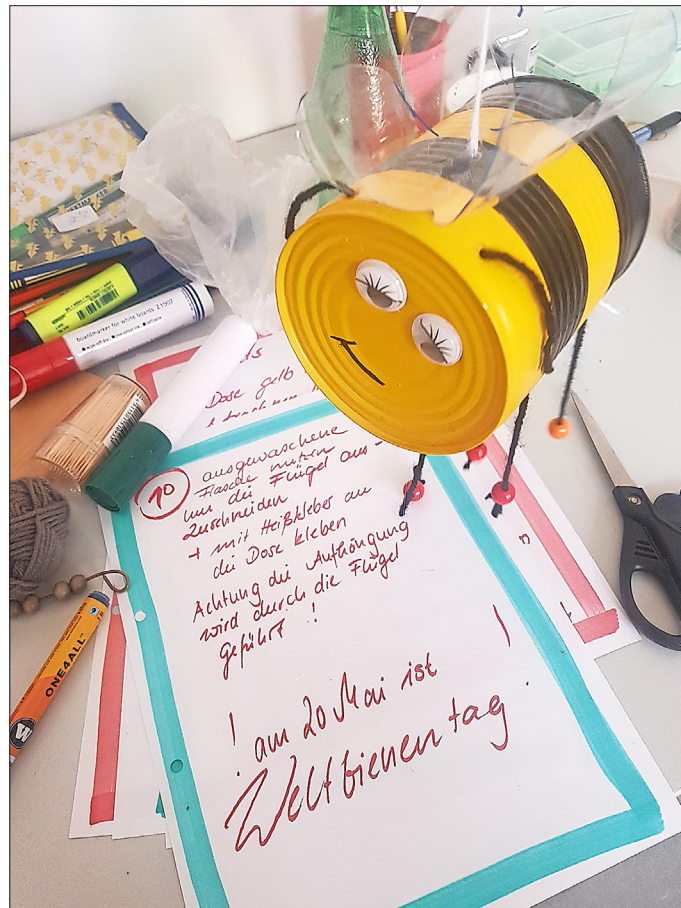 boardmarker for white boards Z 1907
ONE4ALL™
Dose gelb
10
ausgewaschene
Flasche nutzen
um die Flügel aus-
zuschneiden
+ mit Heißkleber an
die Dose kleben
Achtung die Aufhängung
wird durch die Flügel
geführt !
! am 20 Mai ist !
Weltbienentag.